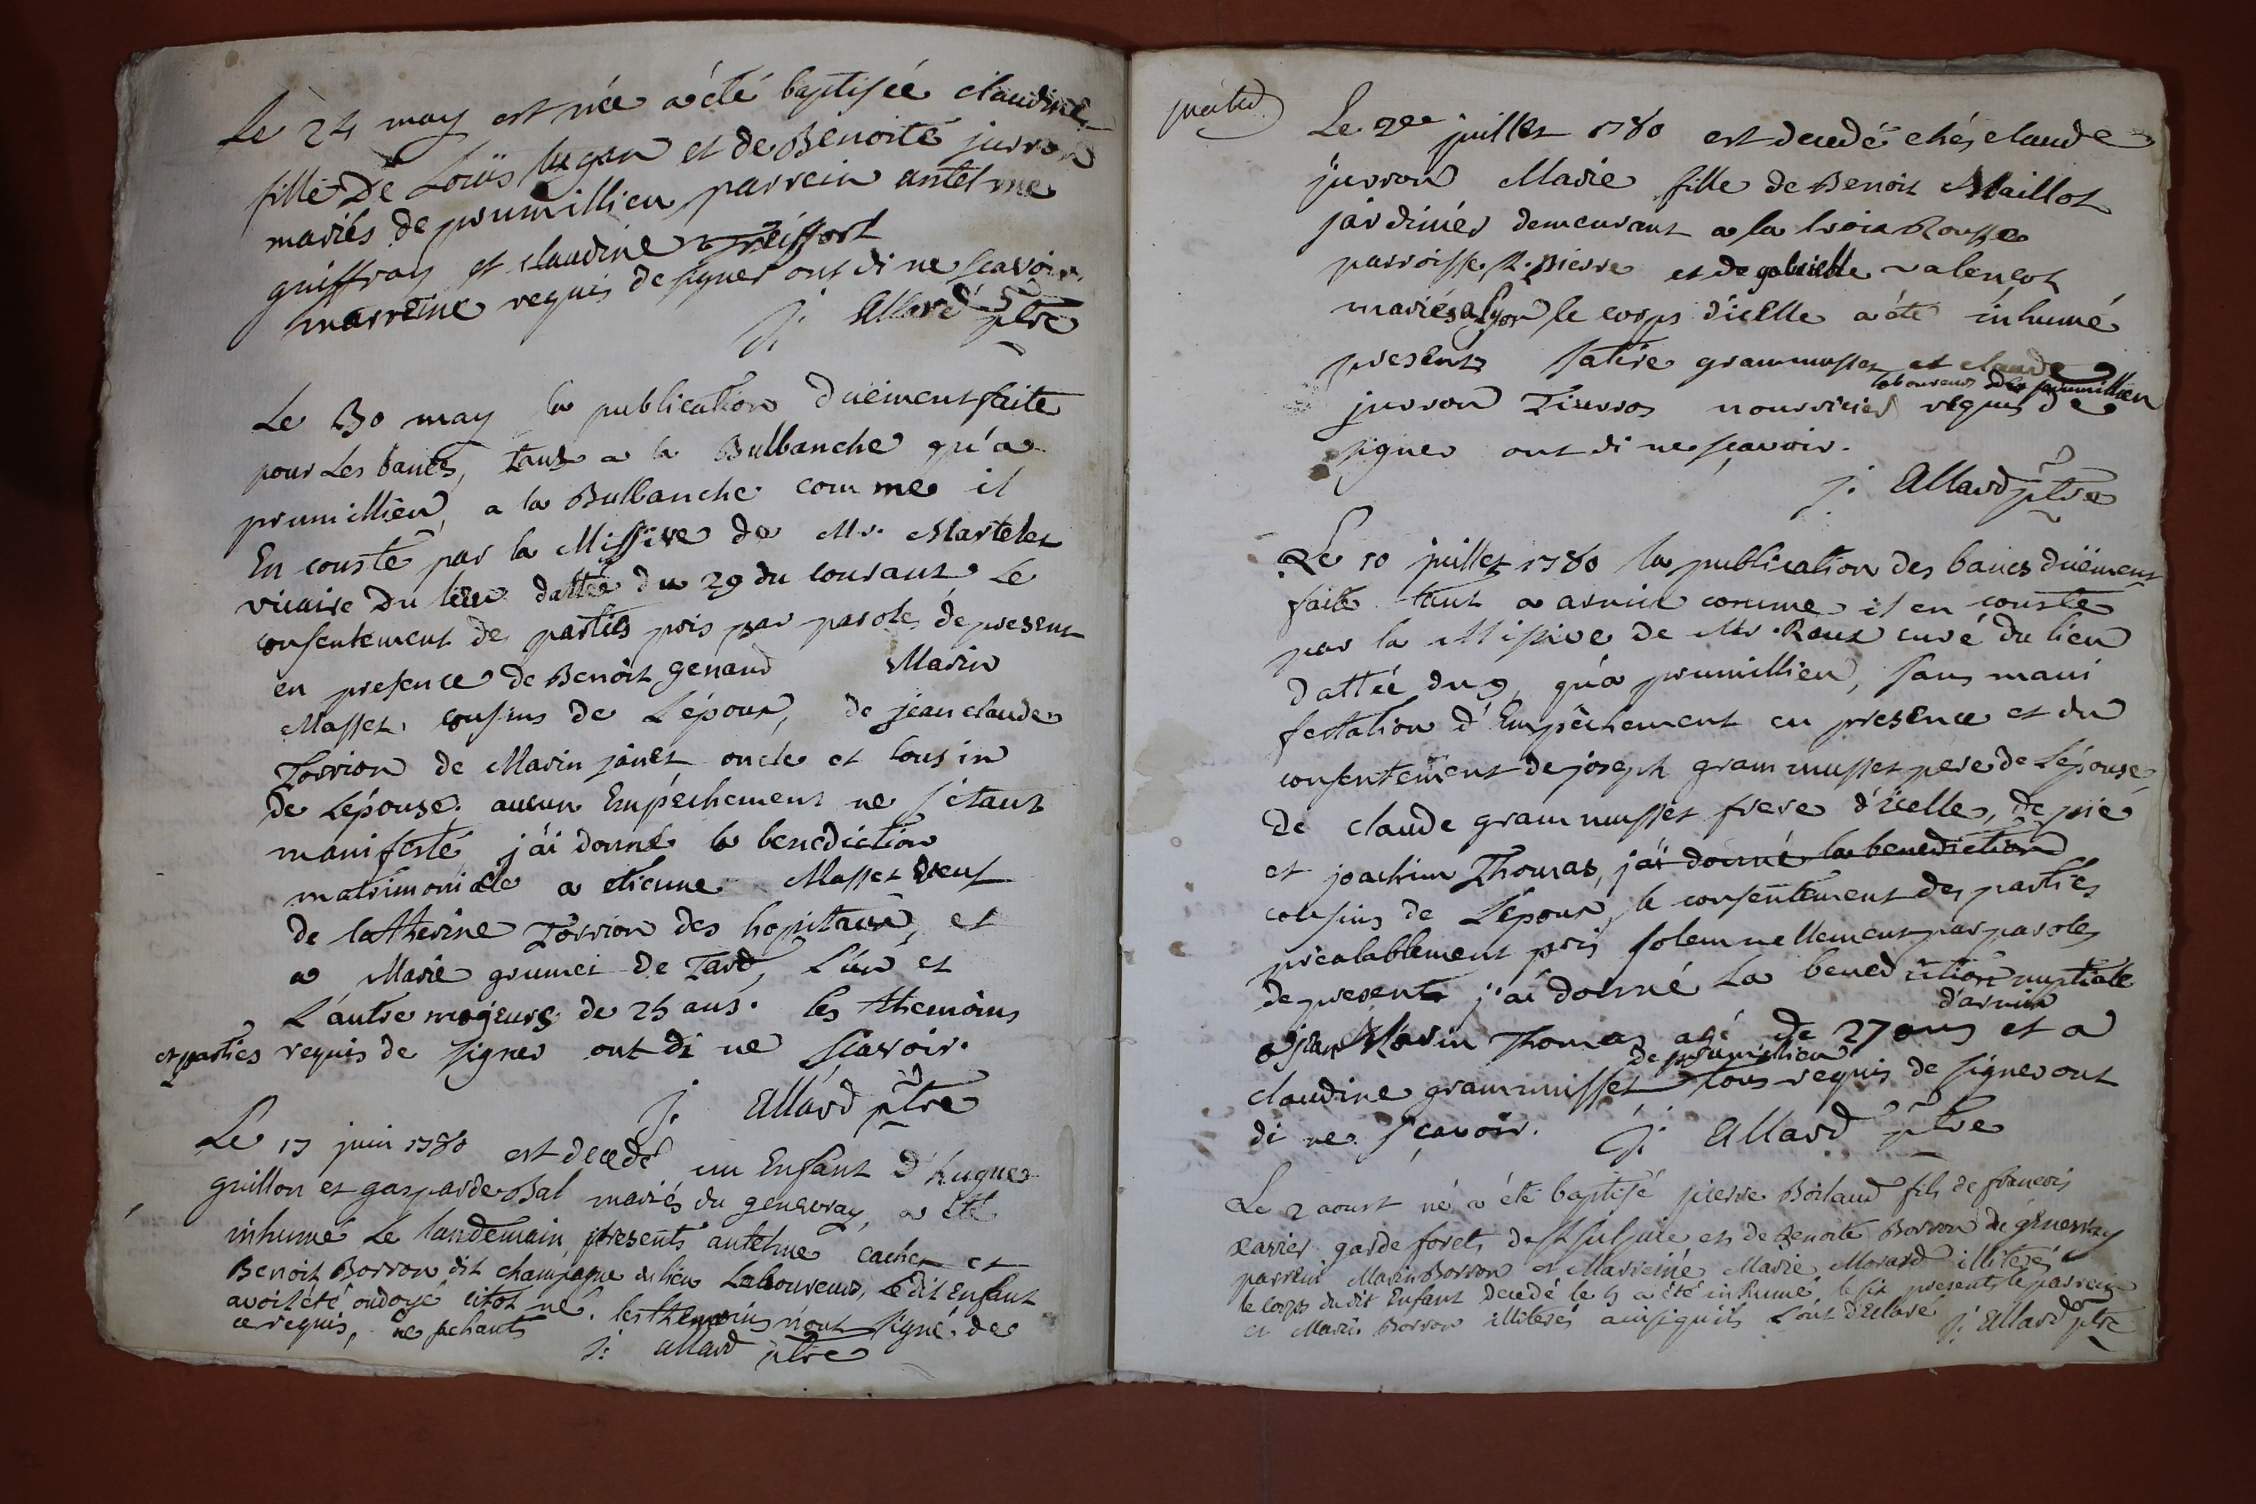 Le 24 may est née a été baptisée claudine
fille De Loüis hugon et de Benoite juvron
mariés de prumillieu parrein antelme
guiffray et claudine Treiffort
marreine requis de signer ont di ne scavoir.
j: Allard ptre
Le 30 may la publication duëment faite
pour Les bancs, tant a la Bulbanche qu'a
prumillieu, a la Bulbanche comme il
En conste par la Missive de Mr. Martelet
vicaire Du lieu dattée du 29 du courant Le
consentement de parties pris par paroles de present
en presence de Benoit genaud Marin
Masset cousins de L'épour, de jean claude
Torrion de Marin janet oncle et cousin
de L'épouse. aucun Empéchement ne s'etant
manifesté j'ai donné la benediction
matrimoniale a etienne Masset veuf
de Catherine Torrion des hopitaux, et
a Marie grumet de Tard, L'un et
L'autre majeurs de 25 ans. les themoins
et parties requis de signer ont di ne scavoir.
j: Allard ptre
Le 17 juin 1780 est decedé un Enfant d'hugue
guillon et gasparde Bal mariés du genevray, a été
inhumé Le landemain, presents antelme cachet et
Benoit Borron dit champagne du lieu Laboureurs, Ledit Enfant
avoit été ondoyé sitot né. les themoins n'ont signé de
ce requis, ne sachants
j: allard ptre
Le 2e juillet 1780 est decedé chés claude
juvron Marie fille de Benoit Maillot
jardinier demeurant a la Croix Rousse
parroisse st. pierre et de gabrielle valençot
mariés a Lyon le corps d'icelle a été inhumé
presents Catire grammusset et claude
laboureurs de prumillieu
juvron Tiurros nourricier requis de
signer ont di ne sçavoir.
j: Allard ptre
Le 10 juillet 1780 la publication des bancs duëment
faite tant a arvier comme il en conste
par la Missive de Mr. Roux curé du lieu
dattée du 9, qu'a prumillieu, sans mani
festation d'Empéchement en presence et du
consentement de joseph grammusset pere de L'épouse,
de claude grammusset frere d'icelle, de pre
et joachim Thomas, j'ai donné la benediction
cousins de L'époux, le consentement des parties
préalablement pris solemnellement par paroles
de present j'ai donné La benediction nuptiale
d'arvier
a jean Marin Thomas agé de 27 ans et a
de prumillieu
claudine grammusset tous requis de signer ont
di ne sçavoir. j: Allard ptre
Le 2 aoust né a été baptisé pierre Boilaud fils de francois
xavier garde forets de st sulpice et de Benoite Borron de génevray
parrein Marin Borron et Marreine Marie Morard illiterés
le corps dudit Enfant decedé le 5 a été inhumé le six presents le parrein
et Marin Borron illiterés ainsi qu'ils L'ont déclaré j: Allard ptre